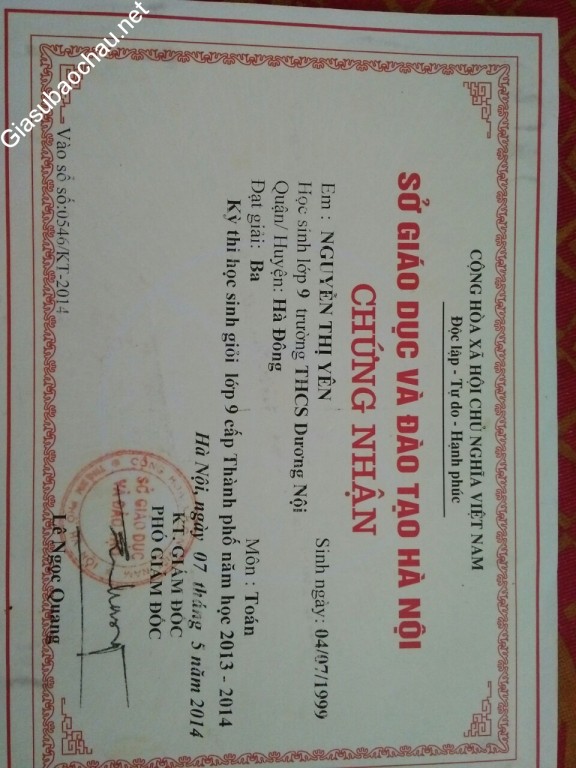 Giasubaochau.net
CỘNG HÒA XÃ HỘI CHỦ NGHĨA VIỆT NAM
Độc lập - Tự do - Hạnh phúc
SỞ GIÁO DỤC VÀ ĐÀO TẠO HÀ NỘI
CHỨNG NHẬN
Em : NGUYỄN THỊ YÊN Sinh ngày: 04/07/1999
Học sinh lớp 9 trường THCS Dương Nội
Quận/ Huyện: Hà Đông
Đạt giải: Ba Môn : Toán
Kỳ thi học sinh giỏi lớp 9 cấp Thành phố năm học 2013 - 2014
Hà Nội, ngày 07 tháng 5 năm 2014
KT. GIÁM ĐỐC
PHÓ GIÁM ĐỐC
SỞ GIÁO DỤC
Lê Ngọc Quang
Vào sổ số:0546/KT-2014